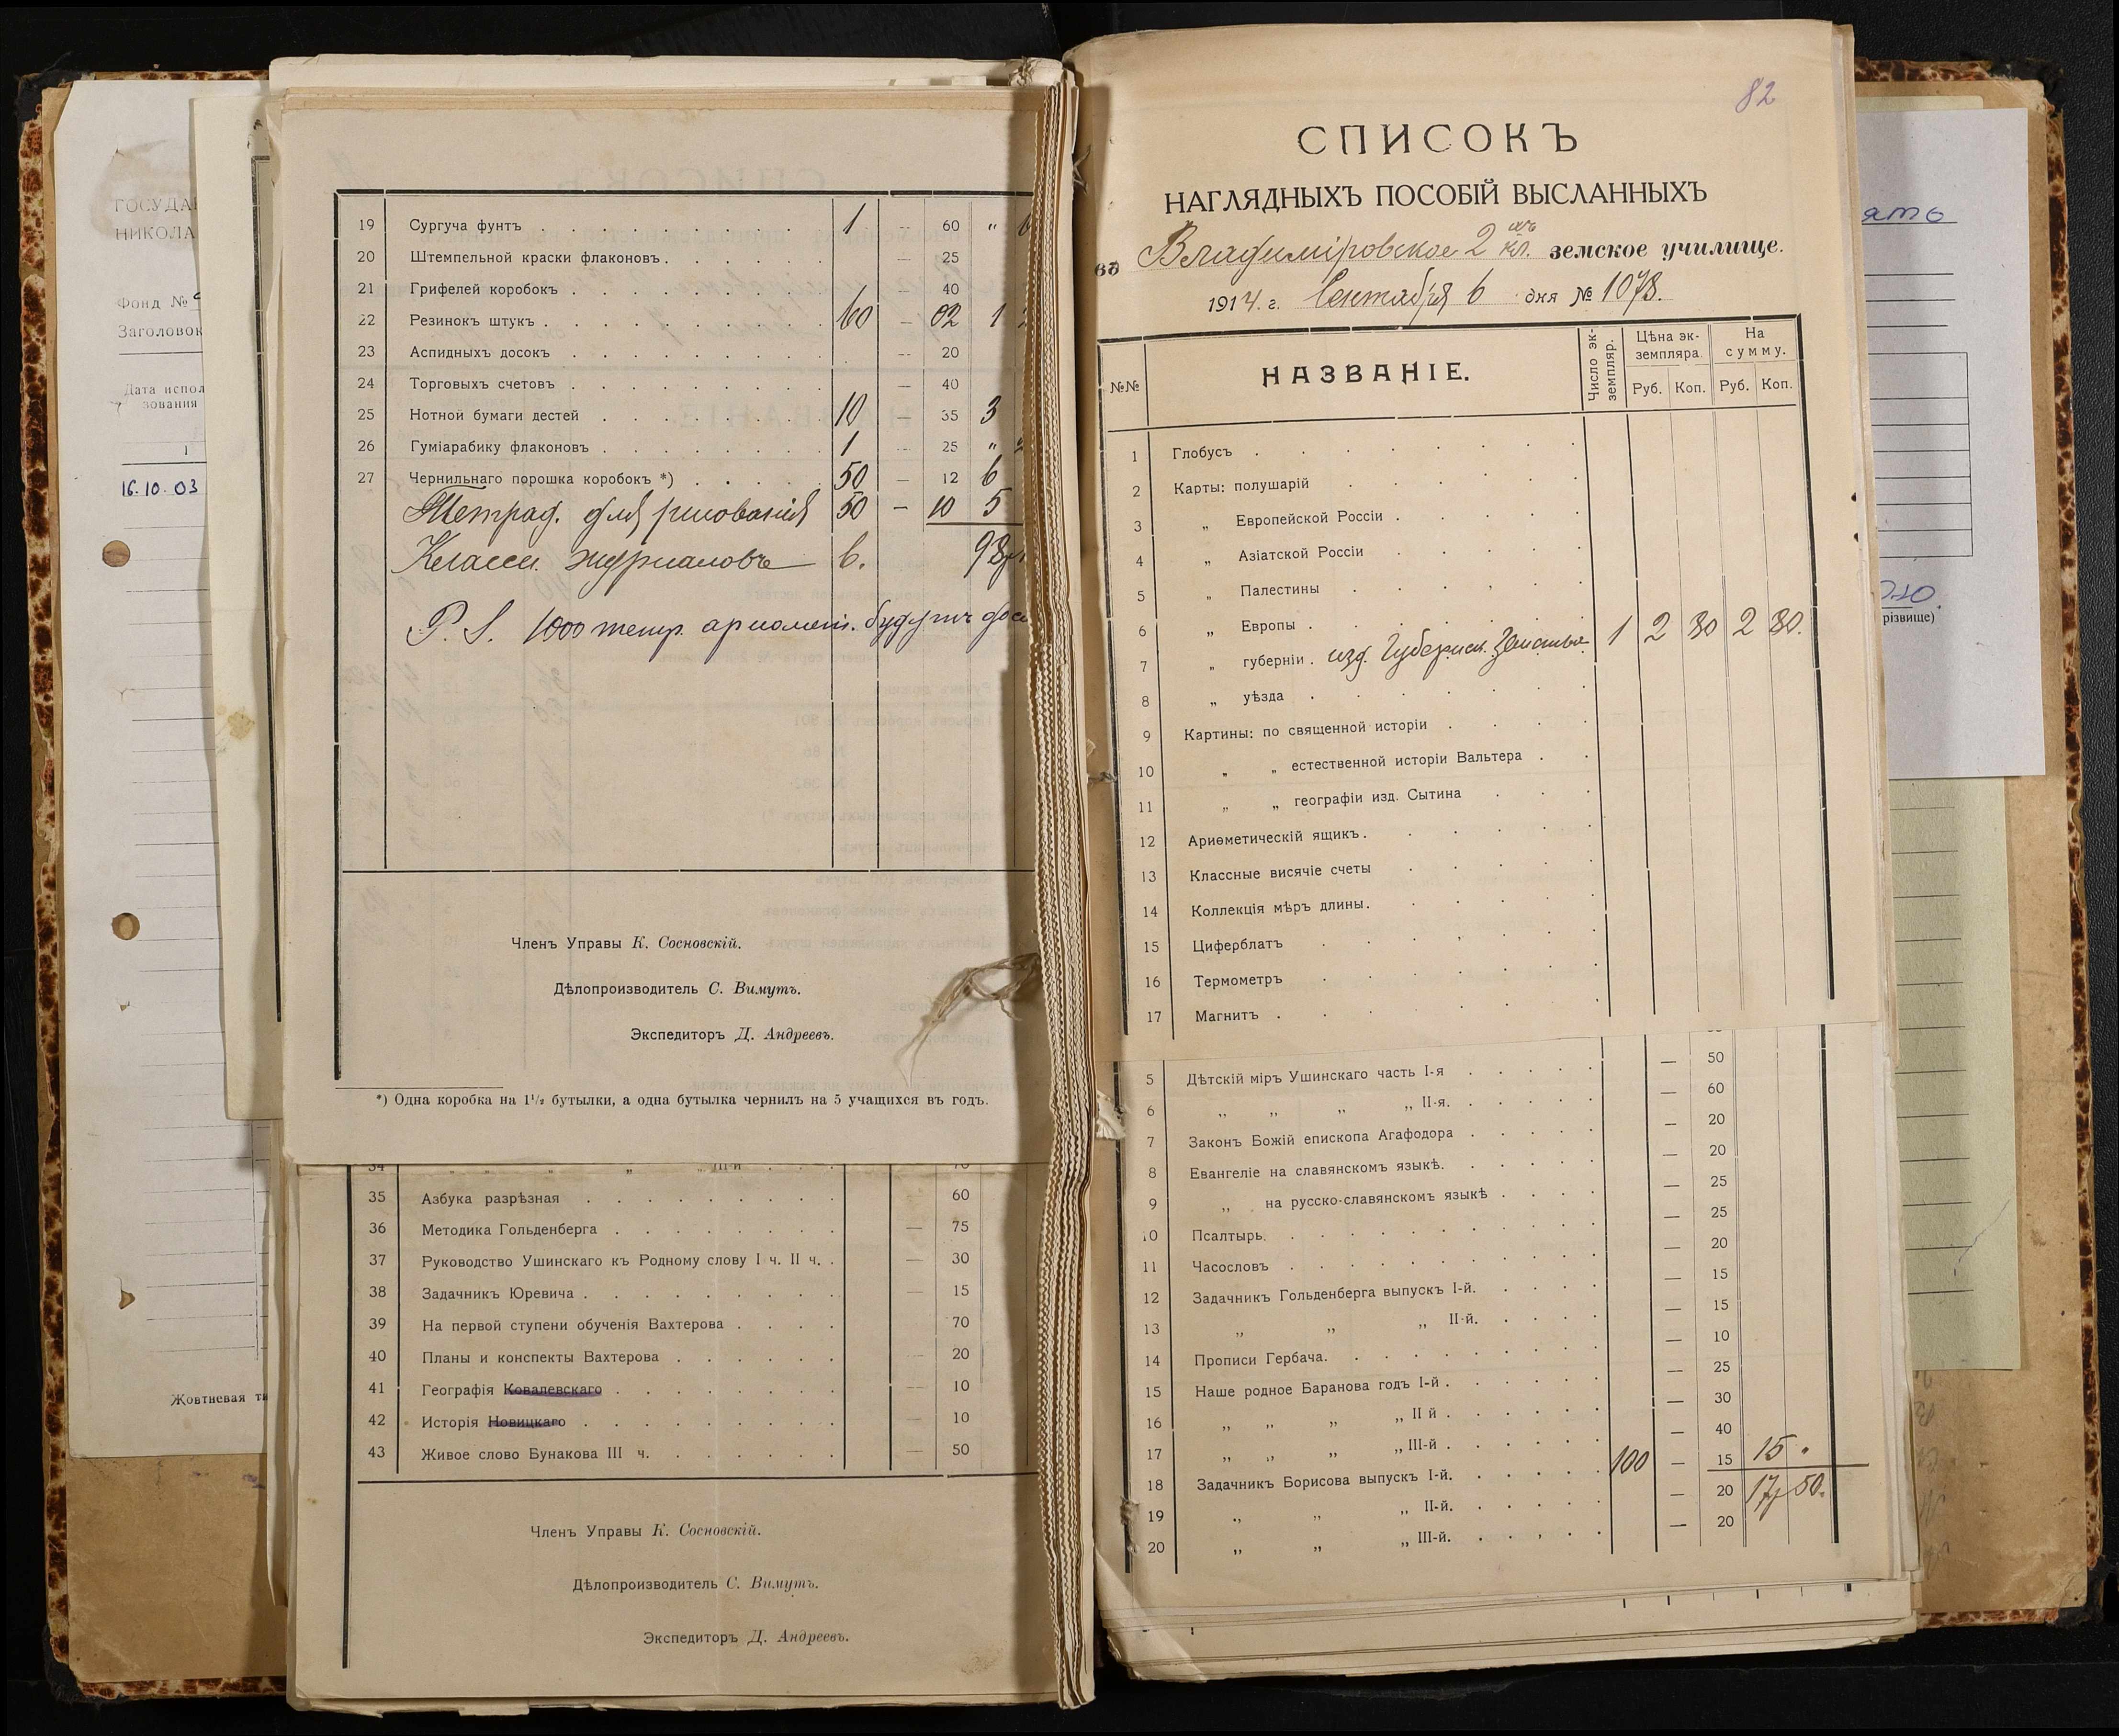 ГОСУДА
НИКОЛА
Фонд №
Заголовок
Дата испол
зования
1
16.10.03
Жовтневая ти
19 Сургуча фунтъ 1 — 60 „
20 Штемпельной краски флаконовъ — 25
21 Грифелей коробокъ — 40
22 Резинокъ штукъ 60 — 02 1
23 Аспидныхъ досокъ — 20
24 Торговыхъ счетовъ — 40
25 Нотной бумаги дестей 10 — 35 3
26 Гуміарабику флаконовъ 1 — 25 „
27 Чернильнаго порошка коробокъ *) 50 — 12 6
Тетрад. для рисованія 50 — 10 5
Класси. журналовъ 6. 98р
P. S. 1000 тетр. арифмет. будутъ дос
Членъ Управы К. Сосновскій.
Дѣлопроизводитель С. Вимутъ.
Экспедиторъ Д. Андреевъ.
*) Одна коробка на 1½ бутылки, а одна бутылка чернилъ на 5 учащихся въ годъ.
34 „ „ „ „ „ III-й 70
35 Азбука разрѣзная 60
36 Методика Гольденберга — 75
37 Руководство Ушинскаго къ Родному слову I ч. II ч. — 30
38 Задачникъ Юревича — 15
39 На первой ступени обученія Вахтерова 70
40 Планы и конспекты Вахтерова — 20
41 Географія Ковалевскаго — 10
42 Исторія Новицкаго — 10
43 Живое слово Бунакова III ч. — 50
Членъ Управы К. Сосновскій.
Дѣлопроизводитель С. Вимутъ.
Экспедиторъ Д. Андреевъ.
82
СПИСОКЪ
НАГЛЯДНЫХЪ ПОСОБІЙ ВЫСЛАННЫХЪ
въ Владиміровское 2 кл. земское училище.
1914. г. Сентября 6 дня № 1078.
№№ НАЗВАНІЕ. Число эк-земпляр. Цѣна эк-земпляра. На сумму.
Руб. Коп. Руб. Коп.
1 Глобусъ
2 Карты: полушарій
3 „ Европейской Россіи
4 „ Азіатской Россіи
5 „ Палестины
6 „ Европы
7 „ губерніи. изд. Губернск. Земства 1 2 30 2 30.
8 „ уѣзда
9 Картины: по священной исторіи
10 „ „ естественной исторіи Вальтера
11 „ „ географіи изд. Сытина
12 Ариѳметическій ящикъ
13 Классные висячіе счеты
14 Коллекція мѣръ длины
15 Циферблатъ
16 Термометръ
17 Магнитъ
5 Дѣтскій міръ Ушинскаго часть I-я — 50
6 „ „ „ „ II-я. — 60
7 Законъ Божій епископа Агафодора — 20
8 Евангеліе на славянскомъ языкѣ. — 20
9 „ на русско-славянскомъ языкѣ — 25
10 Псалтырь. — 25
11 Часословъ — 20
12 Задачникъ Гольденберга выпускъ I-й. — 15
13 „ „ „ II-й. — 15
14 Прописи Гербача. — 10
15 Наше родное Баранова годъ I-й — 25
16 „ „ „ „ II й — 30
17 „ „ „ „ III-й — 40
18 Задачникъ Борисова выпускъ I-й. 100 — 15 15
19 „ „ „ II-й. — 20 17р 50.
20 „ „ „ III-й. — 20
ять
різвище)